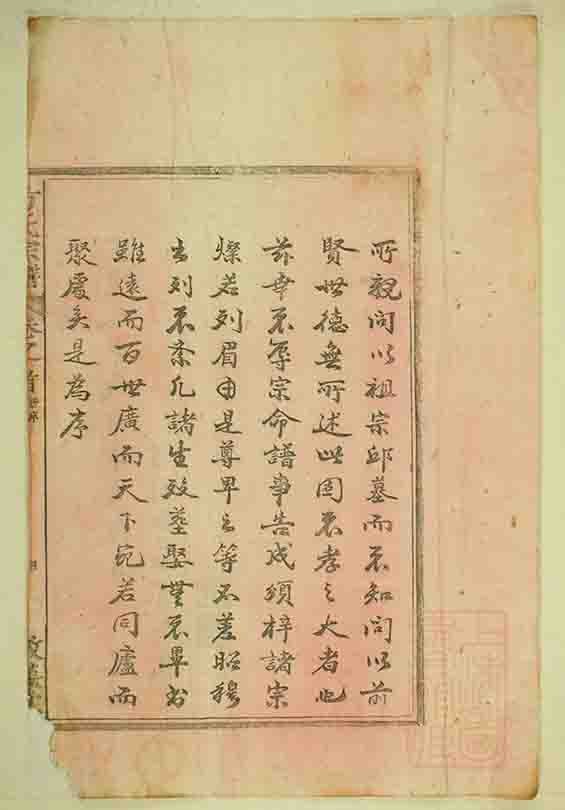 所親問以祖宗邱墓而不知問以前
賢世德無所述此固不孝之大者也
茲幸不辱宗命譜事告成須梓諸宗
燦若列眉由是尊卑之等不差昭穆
之列不紊凡諸生歿塟娶無不畢書
雖遠而百世廣而天下宛若同廬而
聚處矣是為序
氏宗譜 卷之首